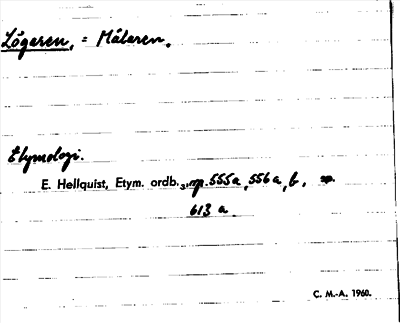 Lögaren, = Mälaren.
Etymologi.
E. Hellquist, Etym. ordb., sp. 555a, 556a, b,
613 a
C. M.-A. 1960.